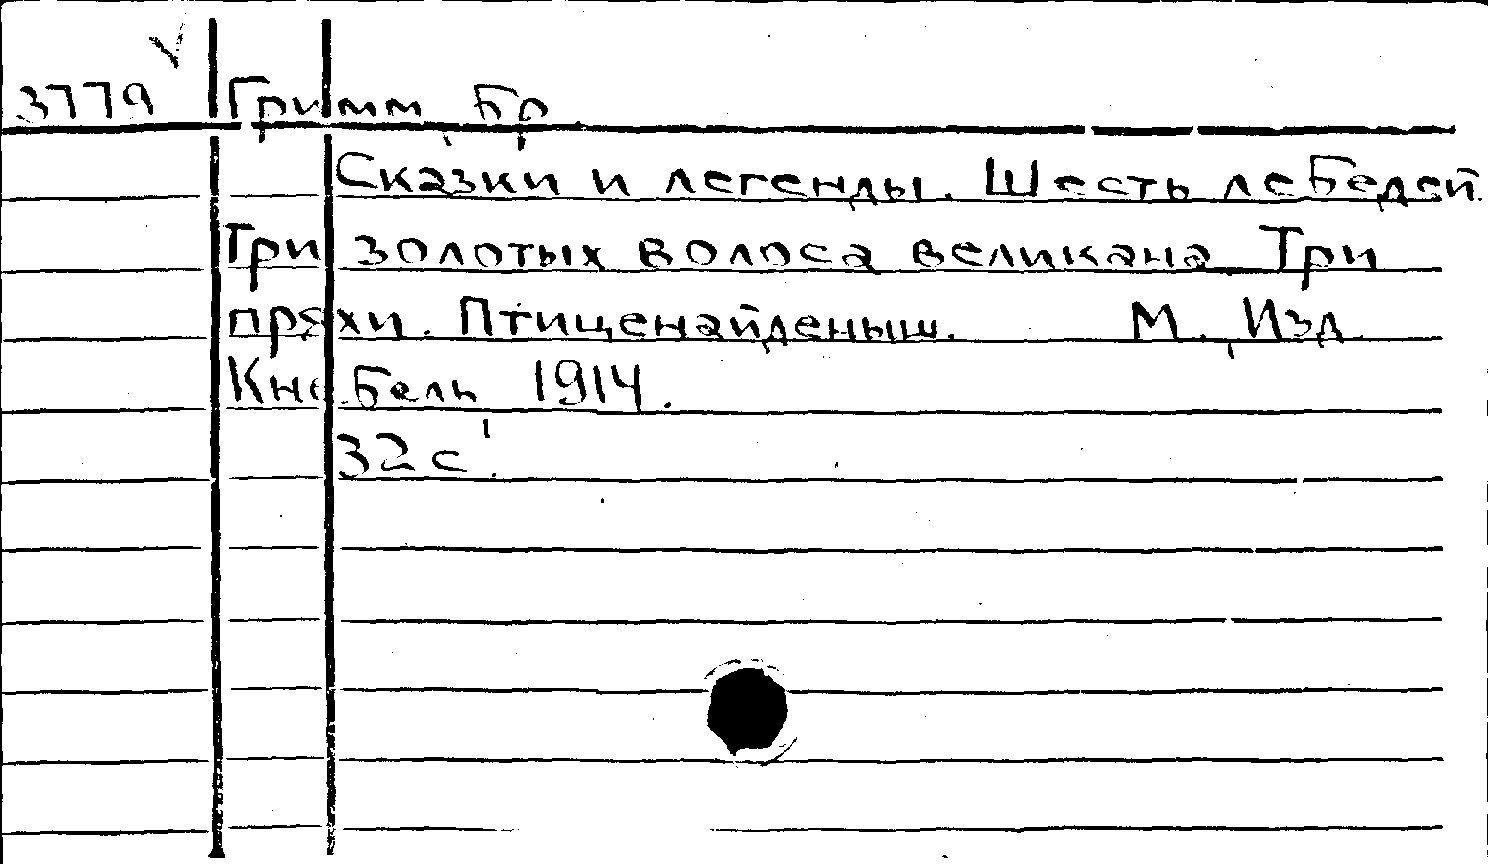 3779 Гримм, Бр
Сказки и легенды. Шесть лебедей.
Три золотых волоса великана Три
пряхи. Птиценайденыш. М., Изд
Кнебель, 1914.
32 с.